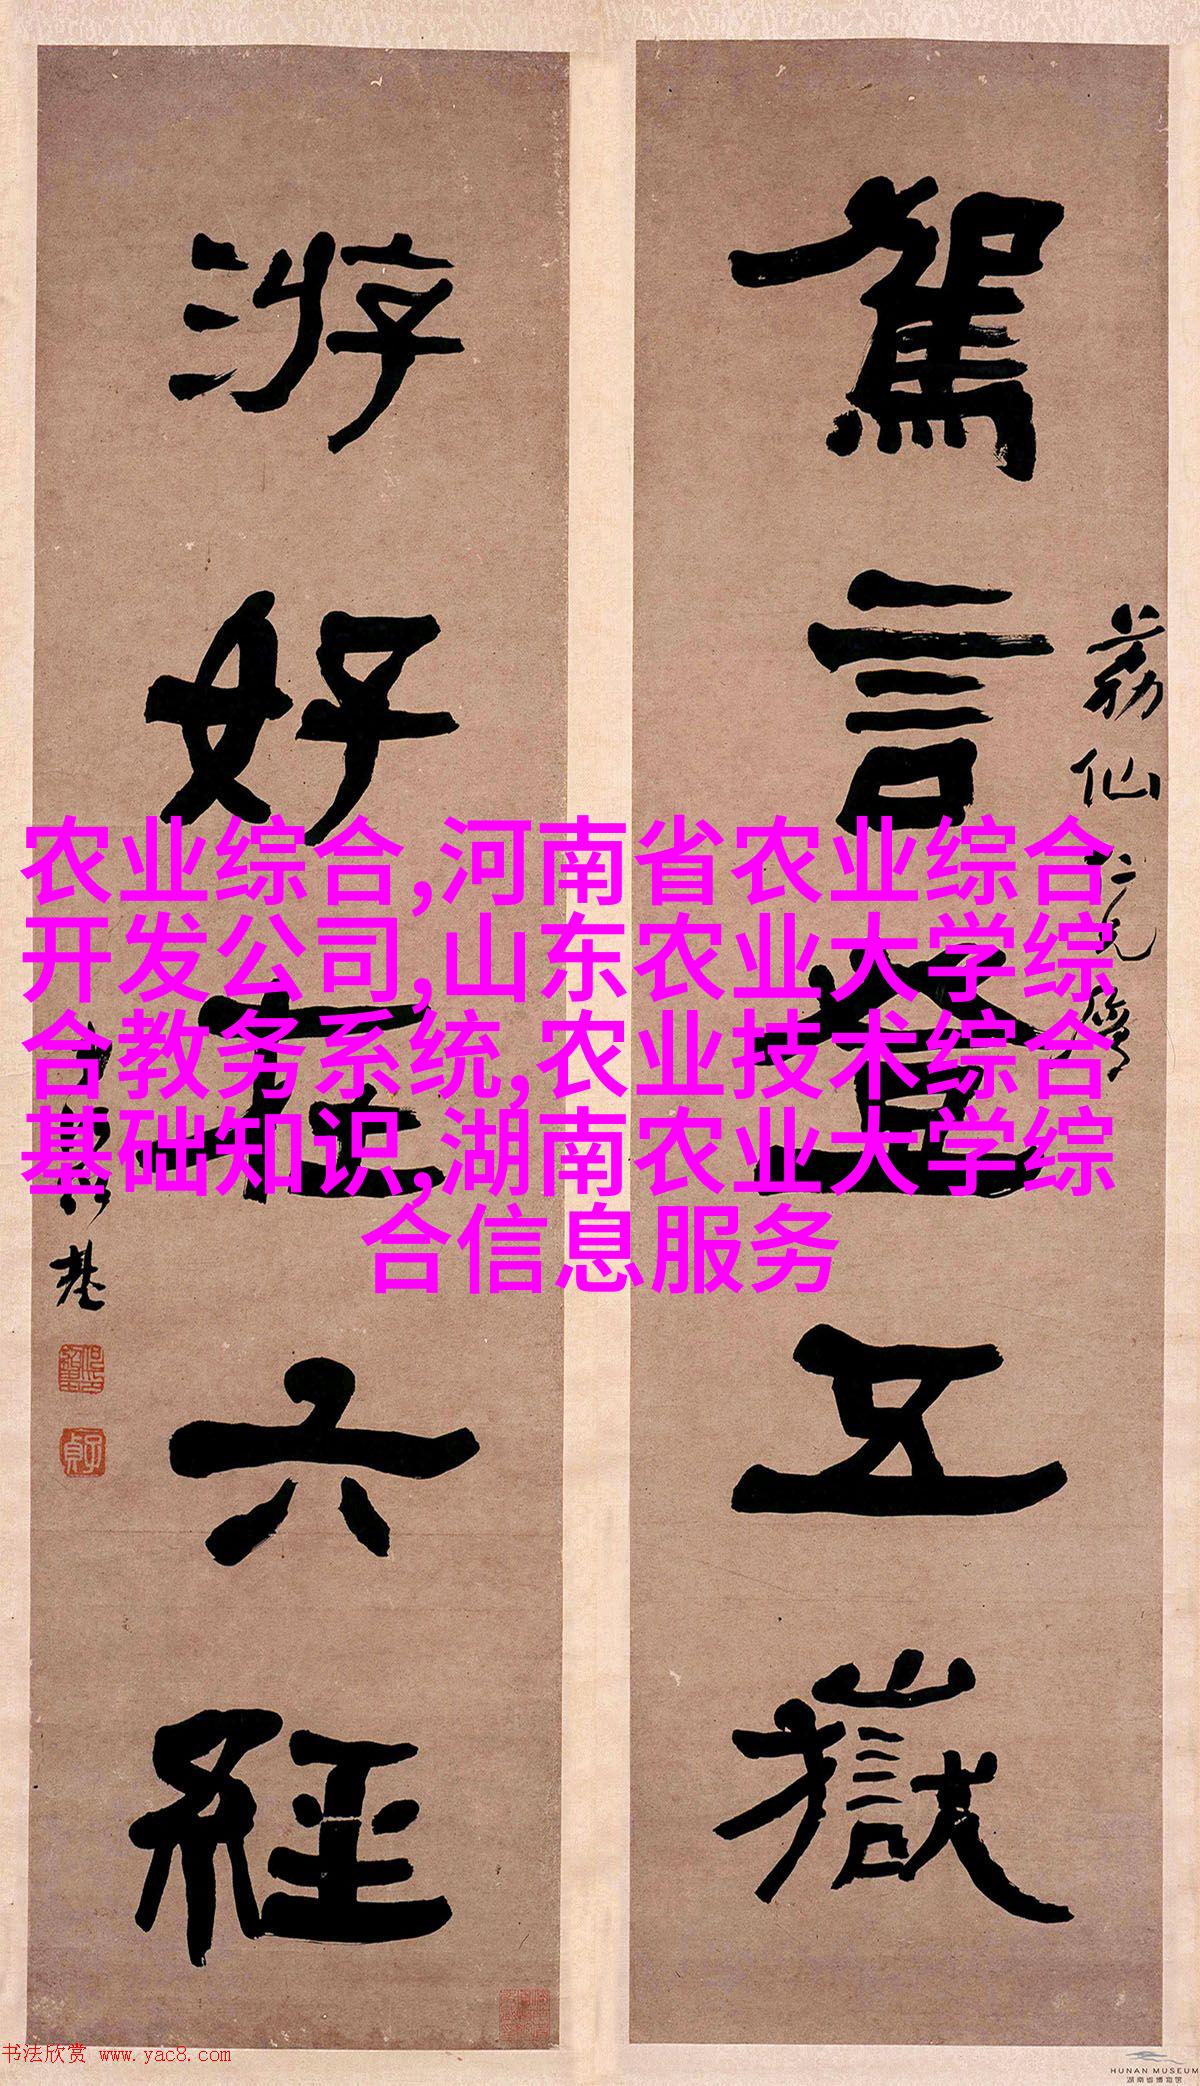 駕言登五嶽
荔仙仁兄屬
游好在六經
紹基
子貞
农业综合,河南省农业综合
开发公司,山东农业大学综
合教务系统,农业技术综合
基础知识,湖南农业大学综
合信息服务
书法欣赏 www.yac8.com
HUNAN MUSEUM
湖南省博物馆